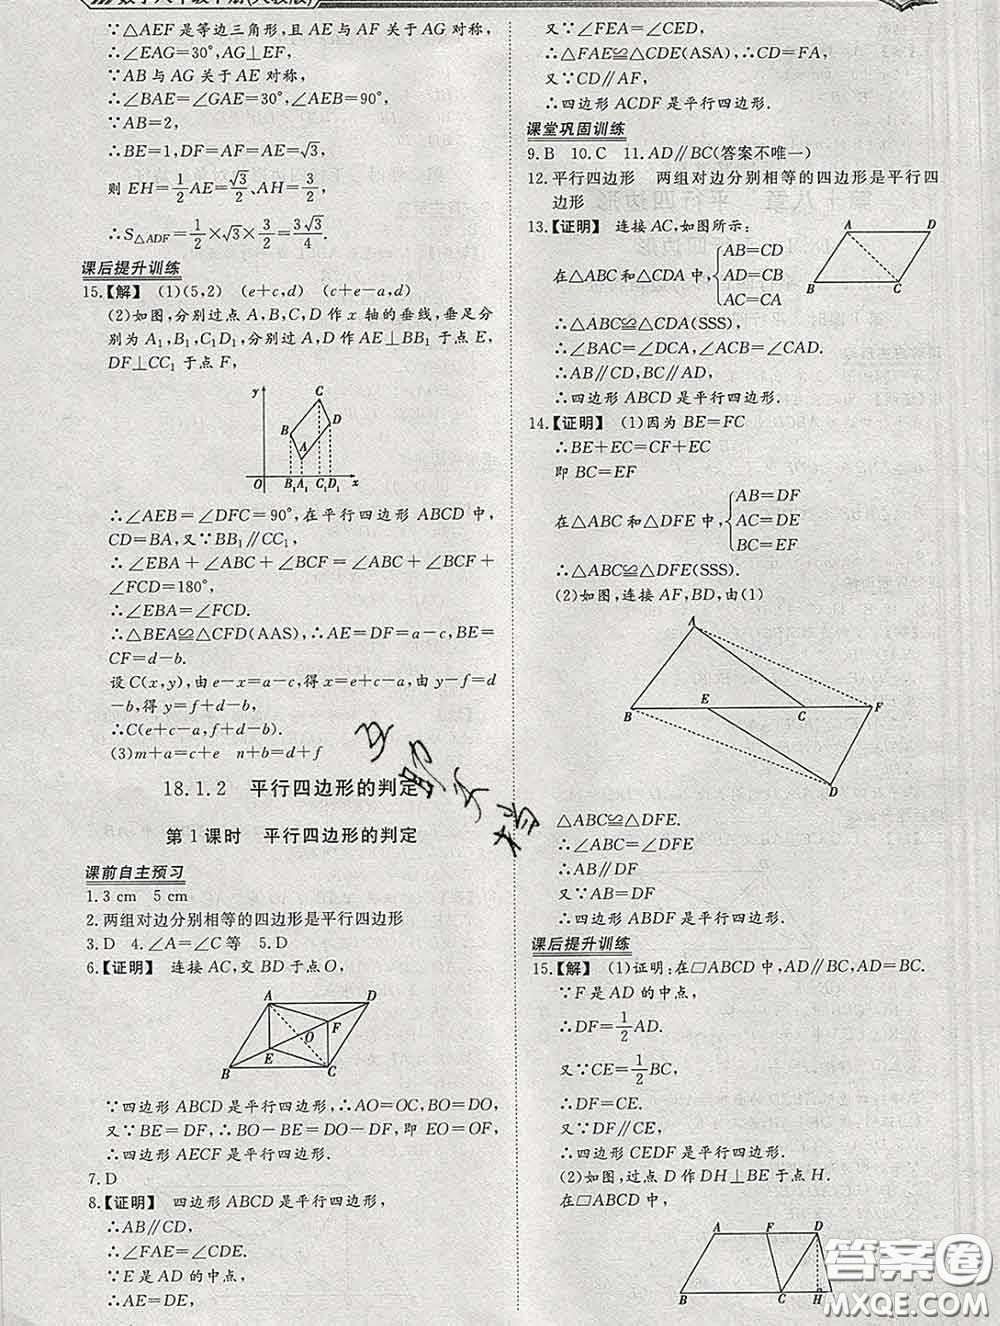 ∵△AEF 是等边三角形,且 AE 与 AF 关于 AG 对称,
∴∠EAG=30°,AG⊥EF,
∵AB 与 AG 关于 AE 对称,
∴∠BAE=∠GAE=30°,∠AEB=90°,
∵AB=2,
∴BE=1,DF=AF=AE=√3,
则 EH=1/2AE=√3/2,AH=3/2,
∴S△ADF=1/2×√3×3/2=3√3/4.
课后提升训练
15.【解】 (1)(5,2) (e+c,d) (c+e-a,d)
(2)如图,分别过点 A,B,C,D 作 x 轴的垂线,垂足分
别为 A₁,B₁,C₁D₁,分别过 A,D 作 AE⊥BB₁ 于点 E,
DF⊥CC₁ 于点 F,
y
C
B
D
A
O B₁A₁ C₁D₁ x
∴∠AEB=∠DFC=90°,在平行四边形 ABCD 中,
CD=BA,又∵BB₁∥CC₁,
∴∠EBA+∠ABC+∠BCF=∠ABC+∠BCF+
∠FCD=180°,
∴∠EBA=∠FCD.
∴△BEA≌△CFD(AAS),∴AE=DF=a-c,BE=
CF=d-b.
设 C(x,y),由 e-x=a-c,得 x=e+c-a,由 y-f=d
-b,得 y=f+d-b,
∴C(e+c-a,f+d-b).
(3)m+a=c+e n+b=d+f
18.1.2 平行四边形的判定
第 1 课时 平行四边形的判定
课前自主预习
1.3 cm 5 cm
2.两组对边分别相等的四边形是平行四边形
3.D 4.∠A=∠C 等 5.D
6.【证明】 连接 AC,交 BD 于点 O,
A D
F
O
E
B C
∵四边形 ABCD 是平行四边形,∴AO=OC,BO=DO,
又∵BE=DF,∴BO-BE=DO-DF,即 EO=OF,
∴四边形 AECF 是平行四边形.
7.D
8.【证明】 四边形 ABCD 是平行四边形,
∴AB∥CD,
∴∠FAE=∠CDE.
∵E 是 AD 的中点,
∴AE=DE,
又∵∠FEA=∠CED,
∴△FAE≌△CDE(ASA),∴CD=FA,
又∵CD∥AF,
∴四边形 ACDF 是平行四边形.
课堂巩固训练
9.B 10.C 11.AD∥BC(答案不唯一)
12.平行四边形 两组对边分别相等的四边形是平行四
边形
13.【证明】 连接 AC,如图所示:
A D
B C
AB=CD
在△ABC 和△CDA 中, AD=CB
AC=CA
∴△ABC≌△CDA(SSS),
∴∠BAC=∠DCA,∠ACB=∠CAD.
∴AB∥CD,BC∥AD,
∴四边形 ABCD 是平行四边形.
14.【证明】 (1)因为 BE=FC
∴BE+EC=CF+EC
即 BC=EF
AB=DF
在△ABC 和△DFE 中, AC=DE
BC=EF
∴△ABC≌△DFE(SSS).
(2)如图,连接 AF,BD,由(1)
A
E
B C F
D
△ABC≌△DFE.
∴∠ABC=∠DFE
∴AB∥DF
又∵AB=DF
∴四边形 ABDF 是平行四边形.
课后提升训练
15.【解】 (1)证明:在□ABCD 中,AD∥BC,AD=BC.
∵F 是 AD 的中点,
∴DF=1/2AD.
又∵CE=1/2BC,
∴DF=CE.
又∵DF∥CE,
∴四边形 CEDF 是平行四边形.
(2)如图,过点 D 作 DH⊥BE 于点 H.
在□ABCD 中,
A F D
B C H
答案圈
MXQE.COM